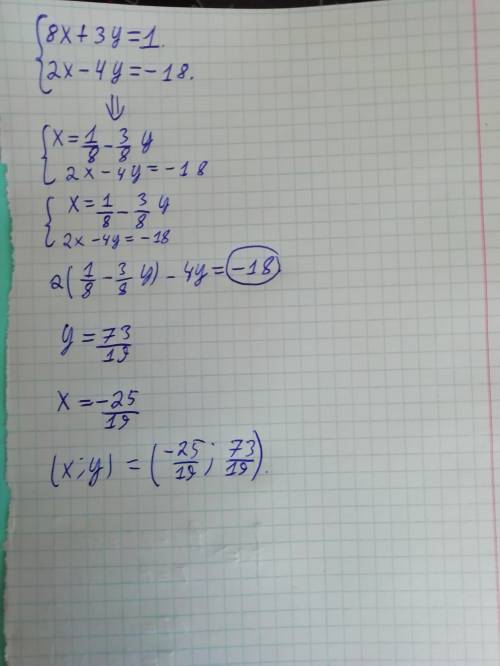 {8x+3y=1.
{2x-4y=-18.
⇓
{x=1/8-3/8 y
{2x-4y=-18
{x=1/8-3/8 y
{2x-4y=-18
2(1/8-3/8 y)-4y=-18
y=73/19
x=-25/19
(x;y)=(-25/19; 73/19).